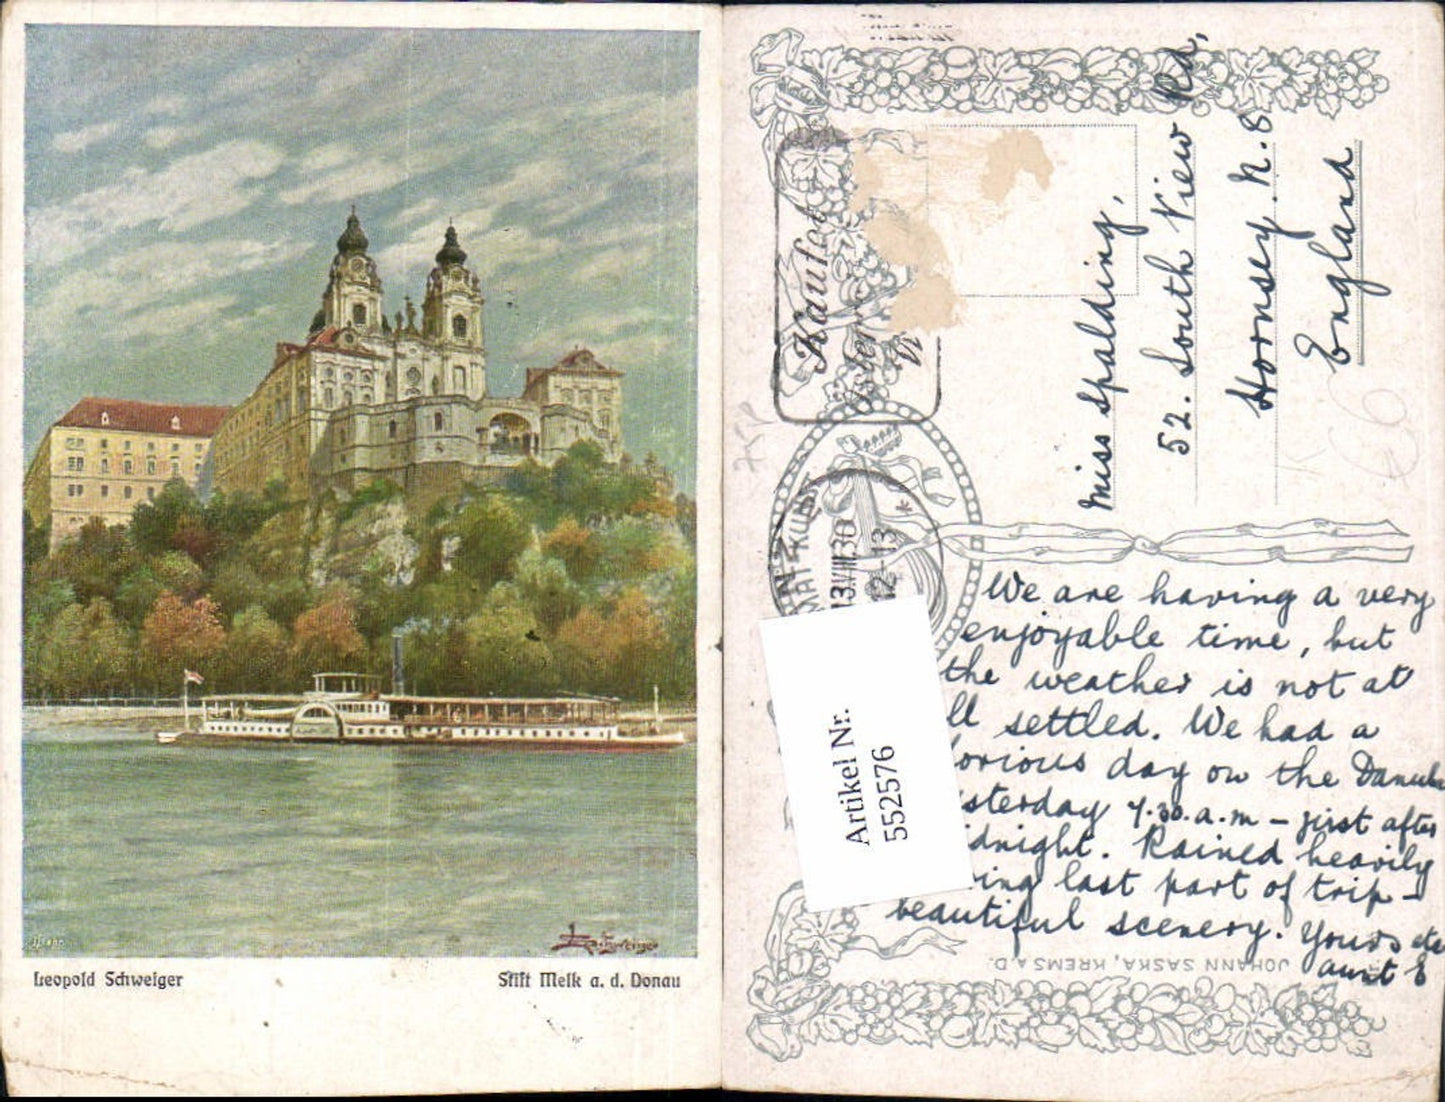 Leopold Schweiger
Stift Melk a. d. Donau
Miss Spalding,
52. South View Rd,
Hornsey. N. 8
England
13.VIII.30
12-13
*
We are having a very
enjoyable time, but
the weather is not at
ll settled. We had a
lorious day on the Danube
sterday 7.30.a.m – just after
idnight. Rained heavily
ing last part of trip –
beautiful scenery. Yours etc
aunt E
Artikel Nr.
552576
JOHANN SASKA, KREMS A.D.